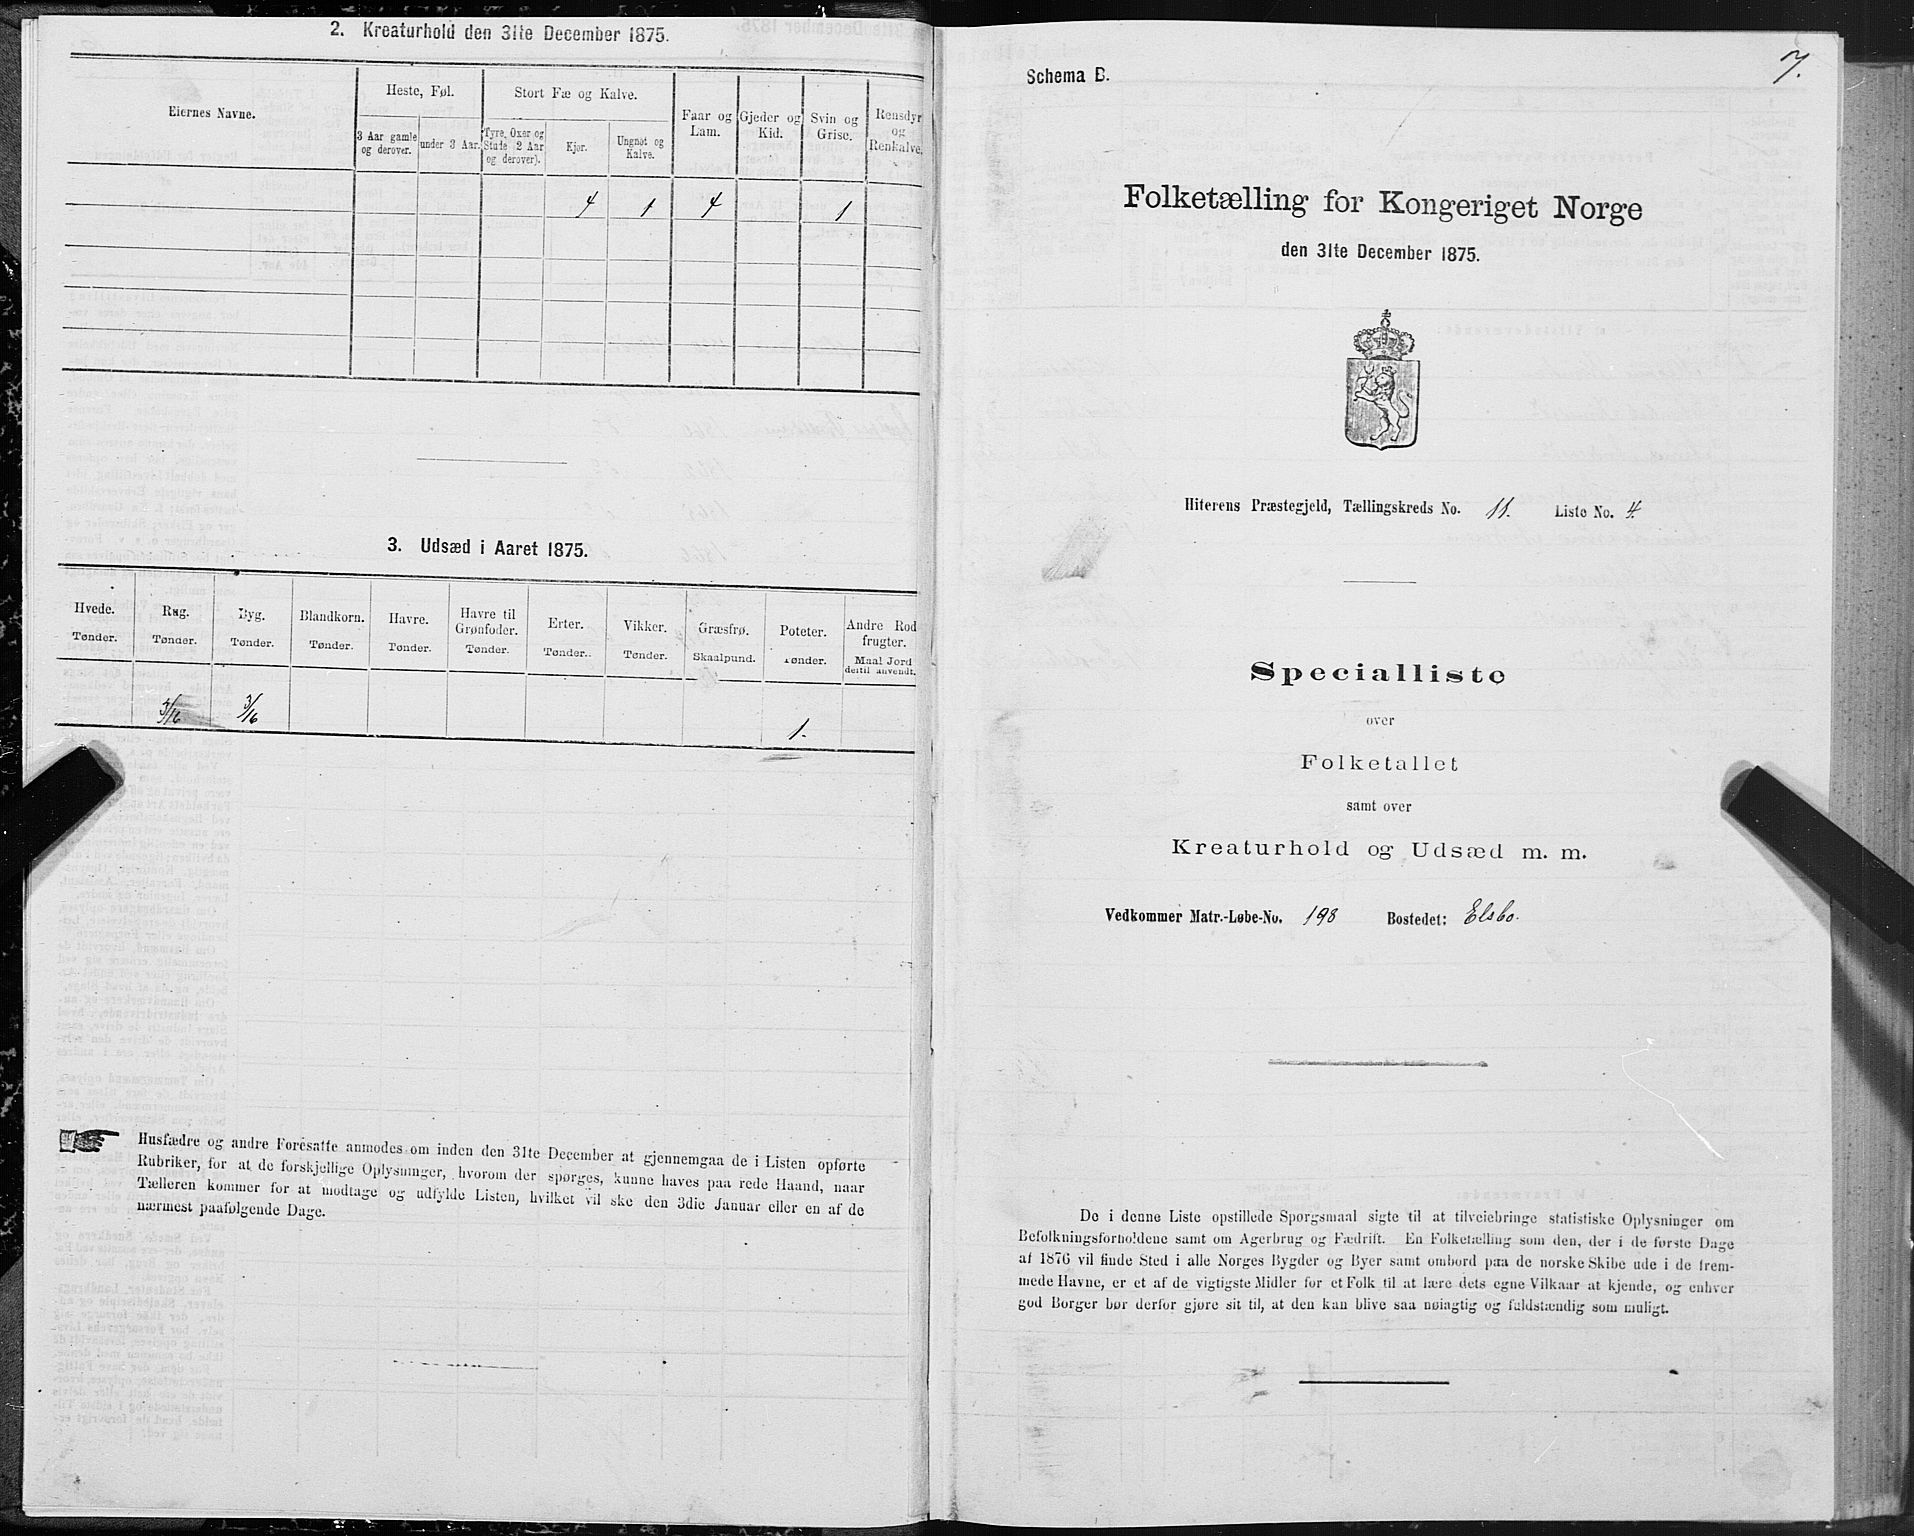 2. Kreaturhold den 31te December 1875.
Eiernes Navne.
Heste, Føl.
Stort Fæ og Kalve.
Faar og
Lam.
Gjeder og
Kid.
Svin og
Grise.
Rensdyr
og
Renkalve.
3 Aar gamle
og derover.
under 3 Aar.
Tyre, Oxer og
Stude (2 Aar
og derover).
Kjør.
Ungnøt og
Kalve.
4 1 4 1
3. Udsæd i Aaret 1875.
Hvede.
Tønder.
Rug.
Tønder.
Byg.
Tønder.
Blandkorn.
Tønder.
Havre.
Tønder.
Havre til
Grønfoder.
Tønder.
Erter.
Tønder.
Vikker.
Tønder.
Græsfrø.
Skaalpund.
Poteter.
Tønder.
Andre Rod
frugter.
Maal Jord
dertil anvendt.
3/16 3/16 1.
Husfædre og andre Foresatte anmodes om inden den 31te December at gjennemgaa de i Listen opførte
Rubriker, for at de forskjellige Oplysninger, hvorom der spørges, kunne haves paa rede Haand, naar
Tælleren kommer for at modtage og udfylde Listen, hvilket vil ske den 3die Januar eller en af de
nærmest paafølgende Dage.
7.
Schema B.
Folketælling for Kongeriget Norge
den 31te December 1875.
Hiterens Præstegjeld, Tællingskreds No. 11. Liste No. 4.
Specialliste
over
Folketallet
samt over
Kreaturhold og Udsæd m. m.
Vedkommer Matr.-Løbe-No. 198 Bostedet: Elsbo.
De i denne Liste opstillede Spørgsmaal sigte til at tilveiebringe statistiske Oplysninger om
Befolkningsforholdene samt om Agerbrug og Fædrift. En Folketælling som den, der i de første Dage
af 1876 vil finde Sted i alle Norges Bygder og Byer samt ombord paa de norske Skibe ude i de frem-
mede Havne, er et af de vigtigste Midler for et Folk til at lære dets egne Vilkaar at kjende, og enhver
god Borger bør derfor gjøre sit til, at den kan blive saa nøiagtig og fuldstændig som muligt.